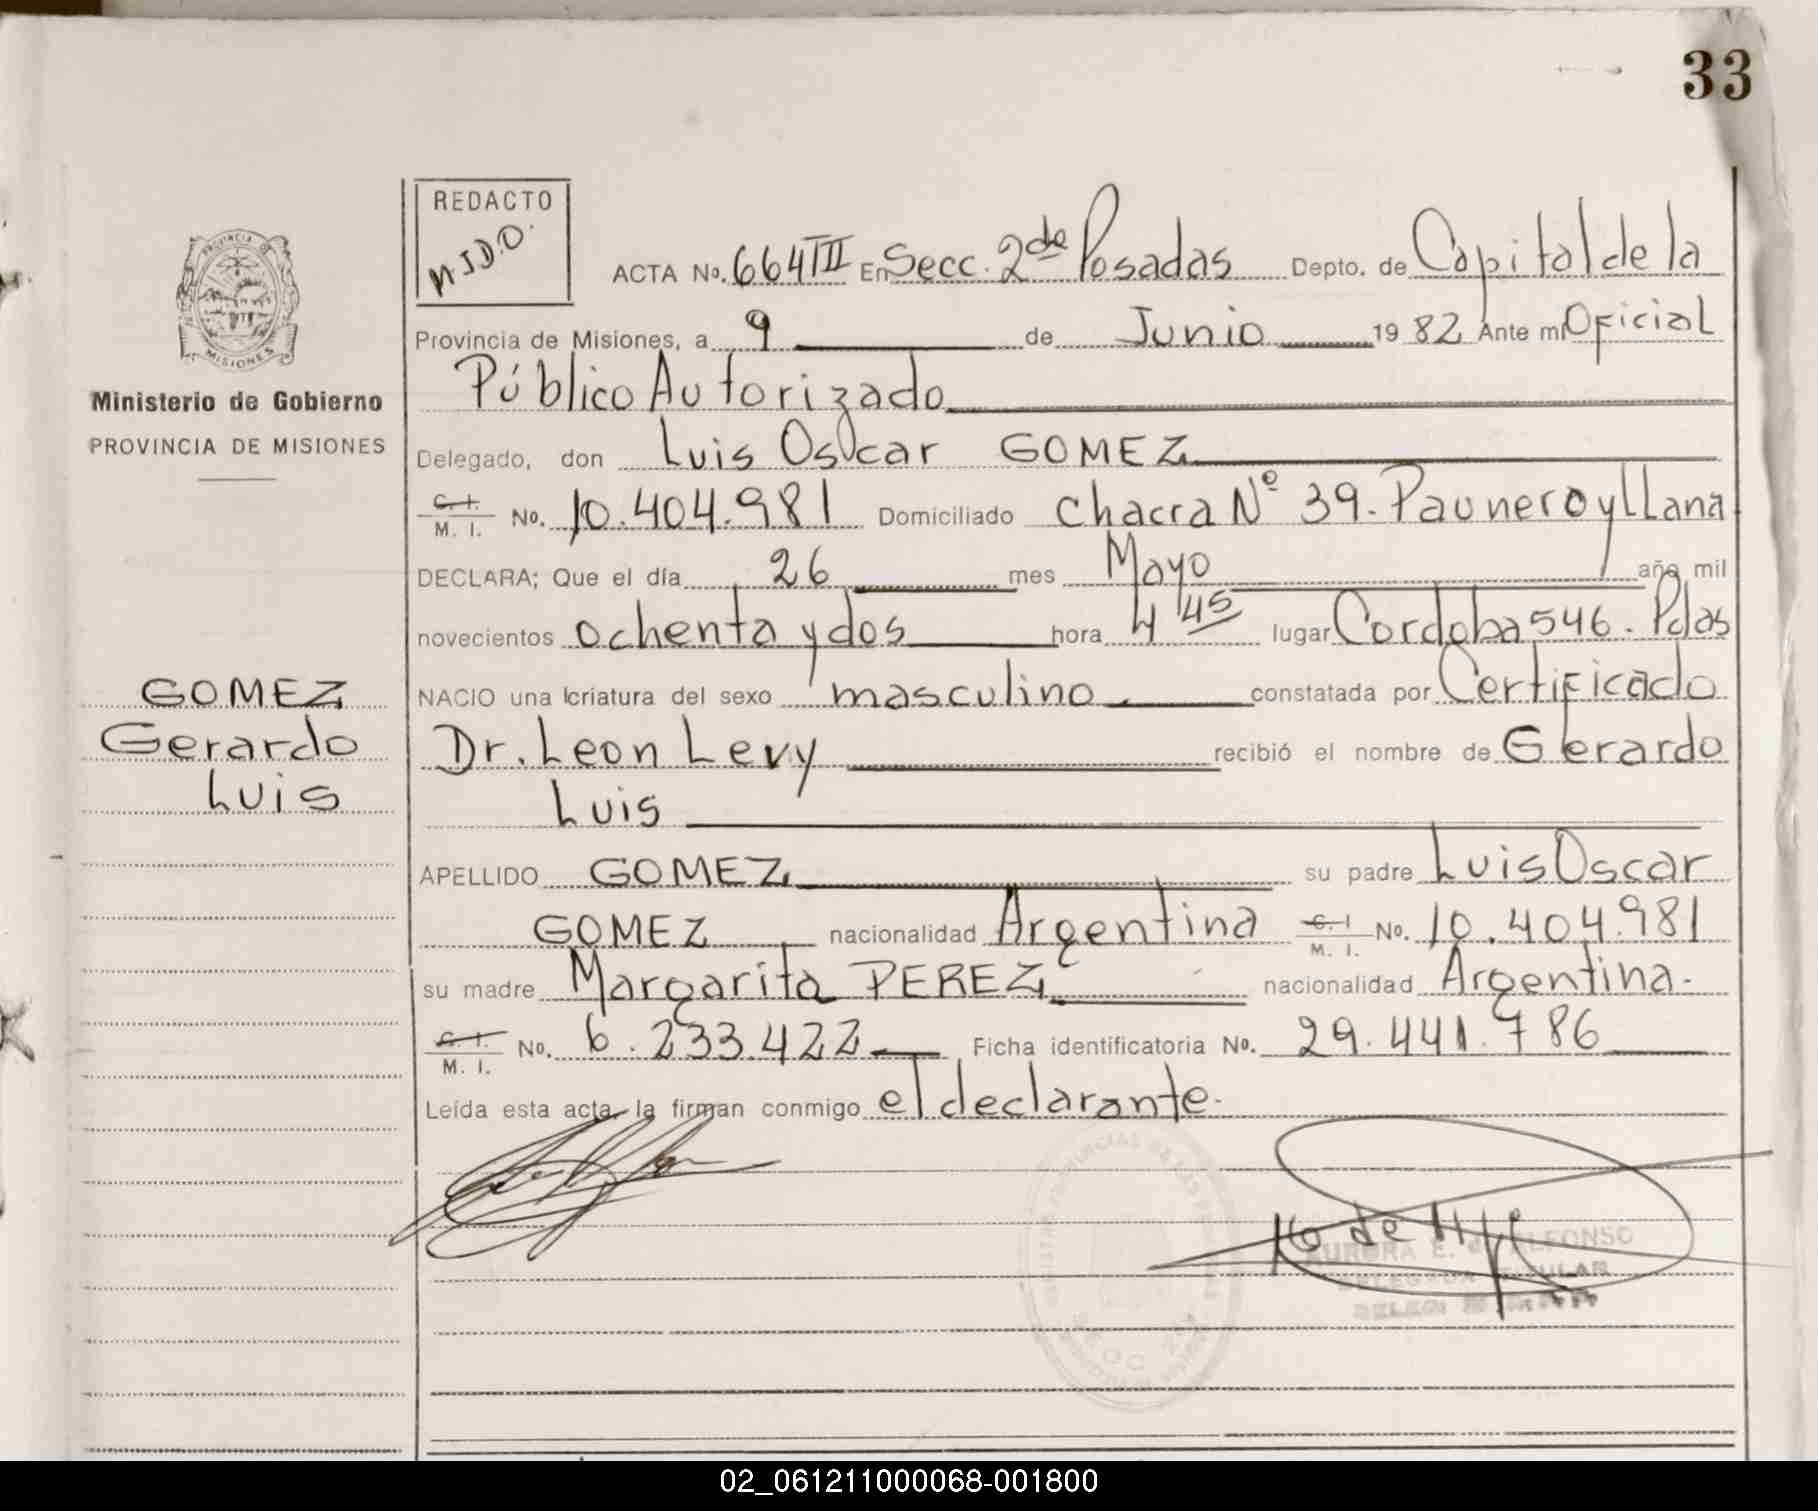 33
REDACTO
M.J.D.O.
ACTA No. 664 III En Secc. 2da Posadas Depto. de Capital de la
Provincia de Misiones, a 9 de Junio 19 82 Ante mi Oficial
Público Autorizado
PROVINCIA DE
MISIONES
Ministerio de Gobierno
PROVINCIA DE MISIONES
Delegado, don Luis Oscar GOMEZ
C. I.
M. I. No. 10.404.981 Domiciliado Chacra Nº 39. Paunero y LLana
DECLARA; Que el día 26 mes Mayo año mil
novecientos ochenta y dos hora 4 45 lugar Cordoba 546. Pdas
GOMEZ
Gerardo
Luis
NACIO una criatura del sexo masculino constatada por Certificado
Dr. Leon Levy recibió el nombre de Gerardo
Luis
APELLIDO GOMEZ su padre Luis Oscar
GOMEZ nacionalidad Argentina C. I. M. I. No. 10.404.981
su madre Margarita PEREZ nacionalidad Argentina.
C. I.
M. I. No. 6.233.422 Ficha identificatoria No. 29.441.786
Leída esta acta, la firman conmigo el declarante.
AURORA E. de ALFONSO
DELEGADA TITULAR
02_061211000068-001800